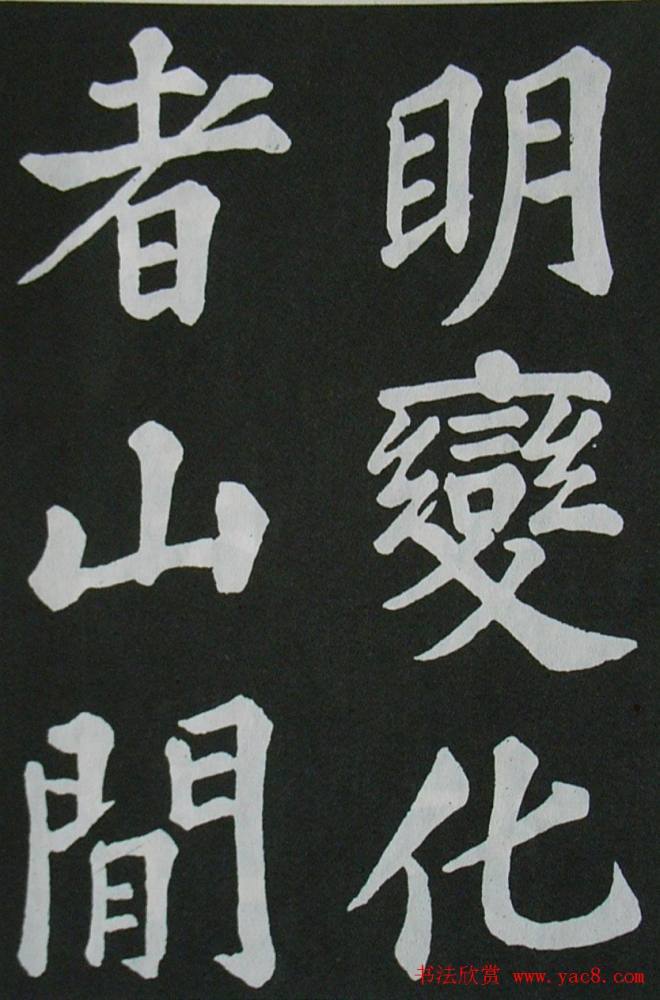 明變化
者山間
书法欣赏 www.yac8.com